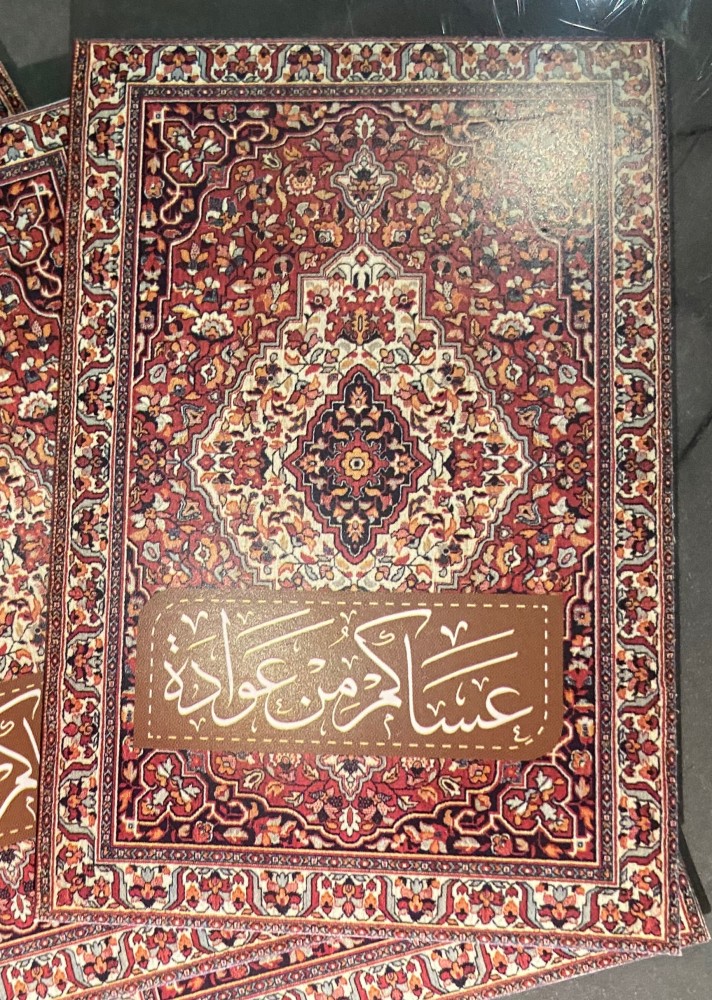 عِسَاكُمْ مُنْ عَوَادَةْ